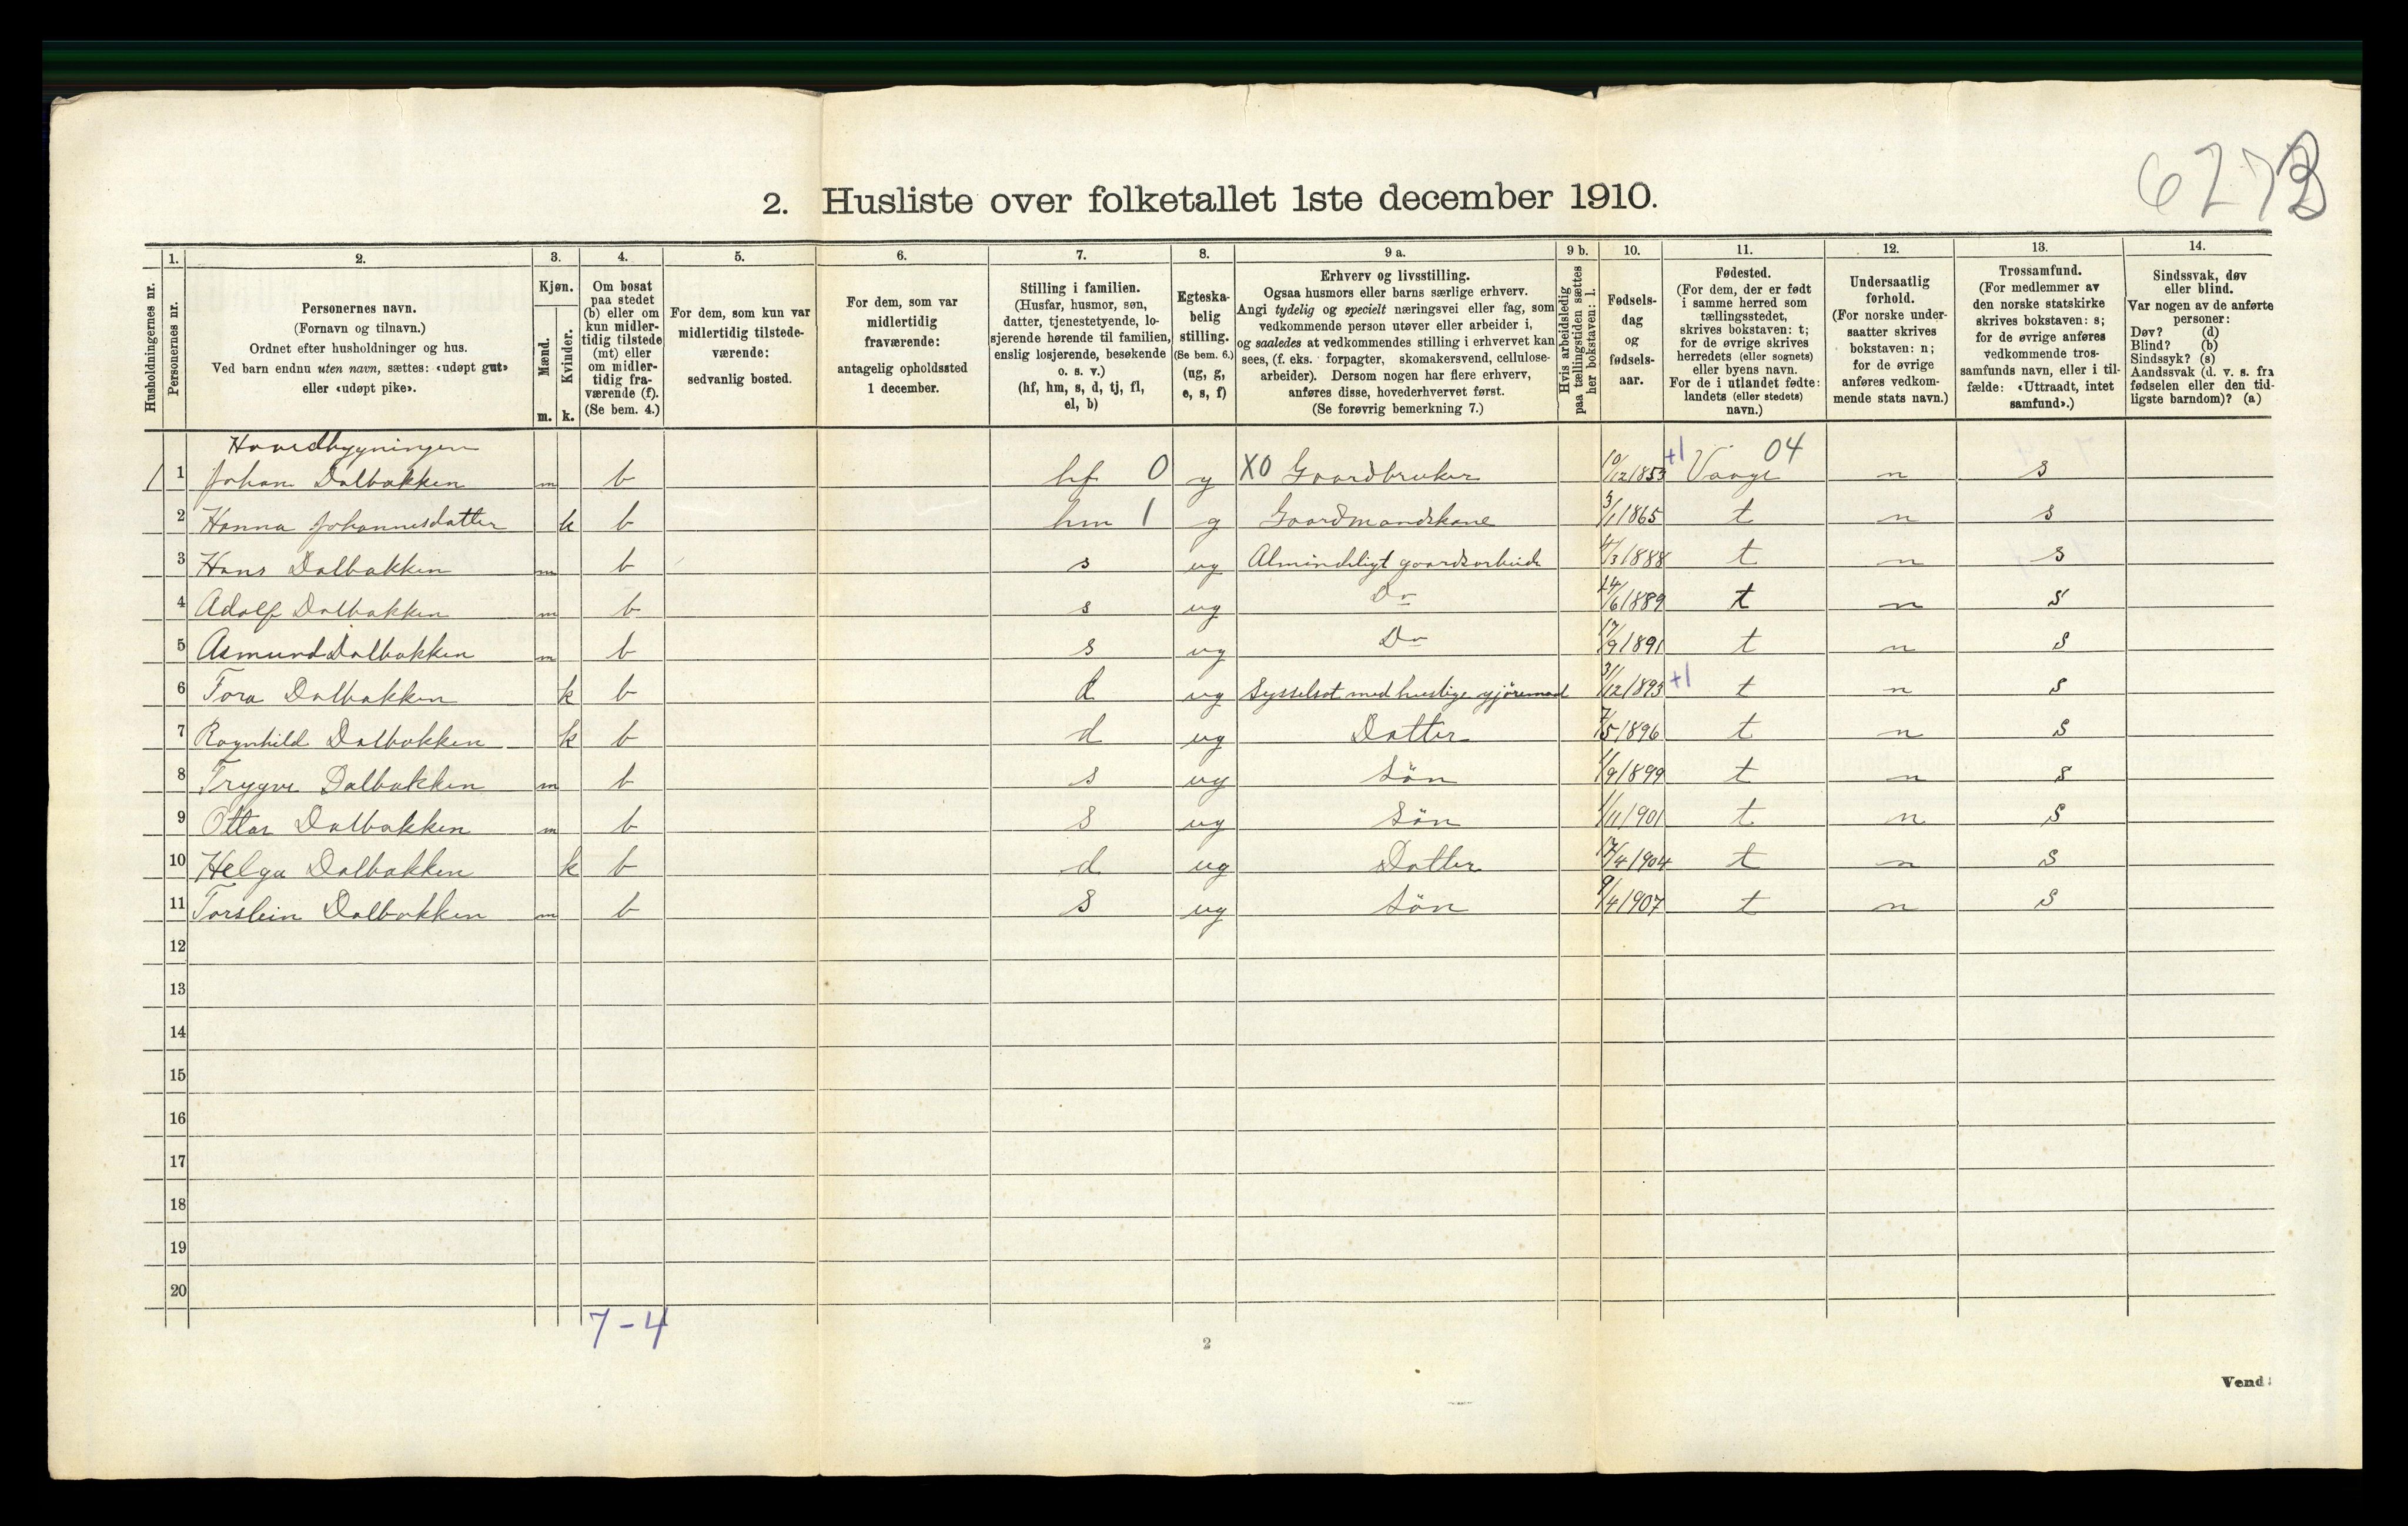 6273
2. Husliste over folketallet 1ste december 1910.
Husholdningernes nr. | 1. Personernes nr. | 2. Personernes navn. (Fornavn og tilnavn.) Ordnet efter husholdninger og hus. Ved barn endnu uten navn, sættes: «udøpt gut» eller «udøpt pike». | 3. Kjøn. Mænd. m. Kvinder. k. | 4. Om bosat paa stedet (b) eller om kun midler-tidig tilstede (mt) eller om midler-tidig fra-værende (f). (Se bem. 4.) | 5. For dem, som kun var midlertidig tilstede-værende: sedvanlig bosted. | 6. For dem, som var midlertidig fraværende: antagelig opholdssted 1 december. | 7. Stilling i familien. (Husfar, husmor, søn, datter, tjenestetyende, lo-sjerende hørende til familien, enslig losjerende, besøkende o. s. v.) (hf, hm, s, d, tj, fl, el, b) | 8. Egteska-belig stilling. (Se bem. 6.) (ug, g, e, s, f) | 9 a. Erhverv og livsstilling. Ogsaa husmors eller barns særlige erhverv. Angi tydelig og specielt næringsvei eller fag, som vedkommende person utøver eller arbeider i, og saaledes at vedkommendes stilling i erhvervet kan sees, (f. eks. forpagter, skomakersvend, cellulose-arbeider). Dersom nogen har flere erhverv, anføres disse, hovederhvervet først. (Se forøvrig bemerkning 7.) | 9 b. Hvis arbeidsledig paa tællingstiden sættes her bokstaven: l. | 10. Fødsels-dag og fødsels-aar. | 11. Fødested. (For dem, der er født i samme herred som tællingsstedet, skrives bokstaven: t; for de øvrige skrives herredets (eller sognets) eller byens navn. For de i utlandet fødte: landets (eller stedets) navn.) | 12. Undersaatlig forhold. (For norske under-saatter skrives bokstaven: n; for de øvrige anføres vedkom-mende stats navn.) | 13. Trossamfund. (For medlemmer av den norske statskirke skrives bokstaven: s; for de øvrige anføres vedkommende tros-samfunds navn, eller i til-fælde: «Uttraadt, intet samfund».) | 14. Sindssvak, døv eller blind. Var nogen av de anførte personer: Døv? (d) Blind? (b) Sindssyk? (s) Aandssvak (d. v. s. fra fødselen eller den tid-ligste barndom)? (a)
Hovedbygningen
1 1 Johan Dalbakken m b hf 0 g X0 Gaardbruker 10/12 1853 +1 Vaage 04 n s
2 Hanna Johannesdatter k b hm 1 g Gaardmandskone 3/1 1865 t n s
3 Hans Dalbakken m b s ug Almindeligt gaardsarbeide 4/3 1888 t n s
4 Adolf Dalbakken m b s ug Do 24/6 1889 t n s
5 Asmund Dalbakken m b s ug Do 17/9 1891 t n s
6 Tora Dalbakken k b d ug Sysselsat med huslige gjöremaal 31/12 1893 +1 t n s
7 Ragnhild Dalbakken k b d ug Datter 7/5 1896 t n s
8 Trygve Dalbakken m b s ug Sön 1/9 1899 t n s
9 Ottar Dalbakken m b s ug Sön 1/11 1901 t n s
10 Helga Dalbakken k b d ug Datter 17/4 1904 t n s
11 Torstein Dalbakken m b s ug Sön 9/4 1907 t n s
12
13
14
15
16
17
18
19
20
7-4
2
Vend!